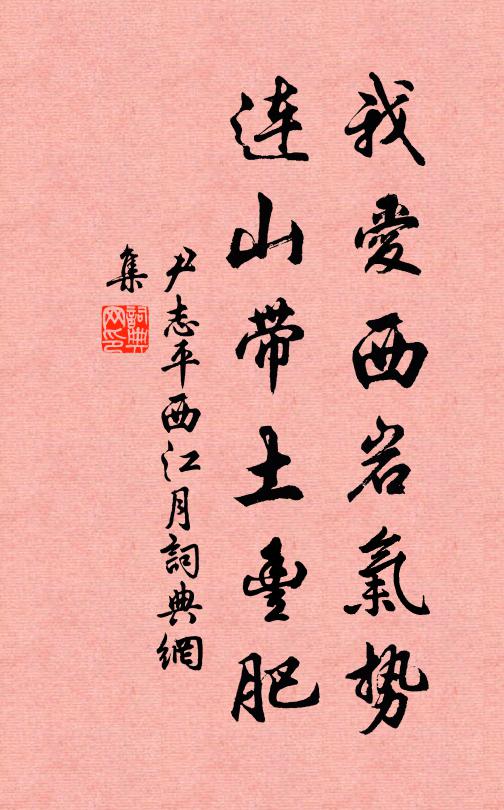 我愛西岩氣勢
连山带土豊肥
尹志平西江月詞典網
集
詞典
网印